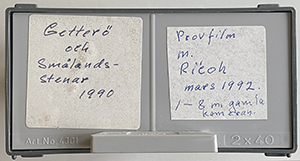 Getterö
och
Smålands-
stenar
1990
Provfilm
m.
Ricoh
mars 1992.
1-8 m gamla
kameran.
Art.No 4101
2x40